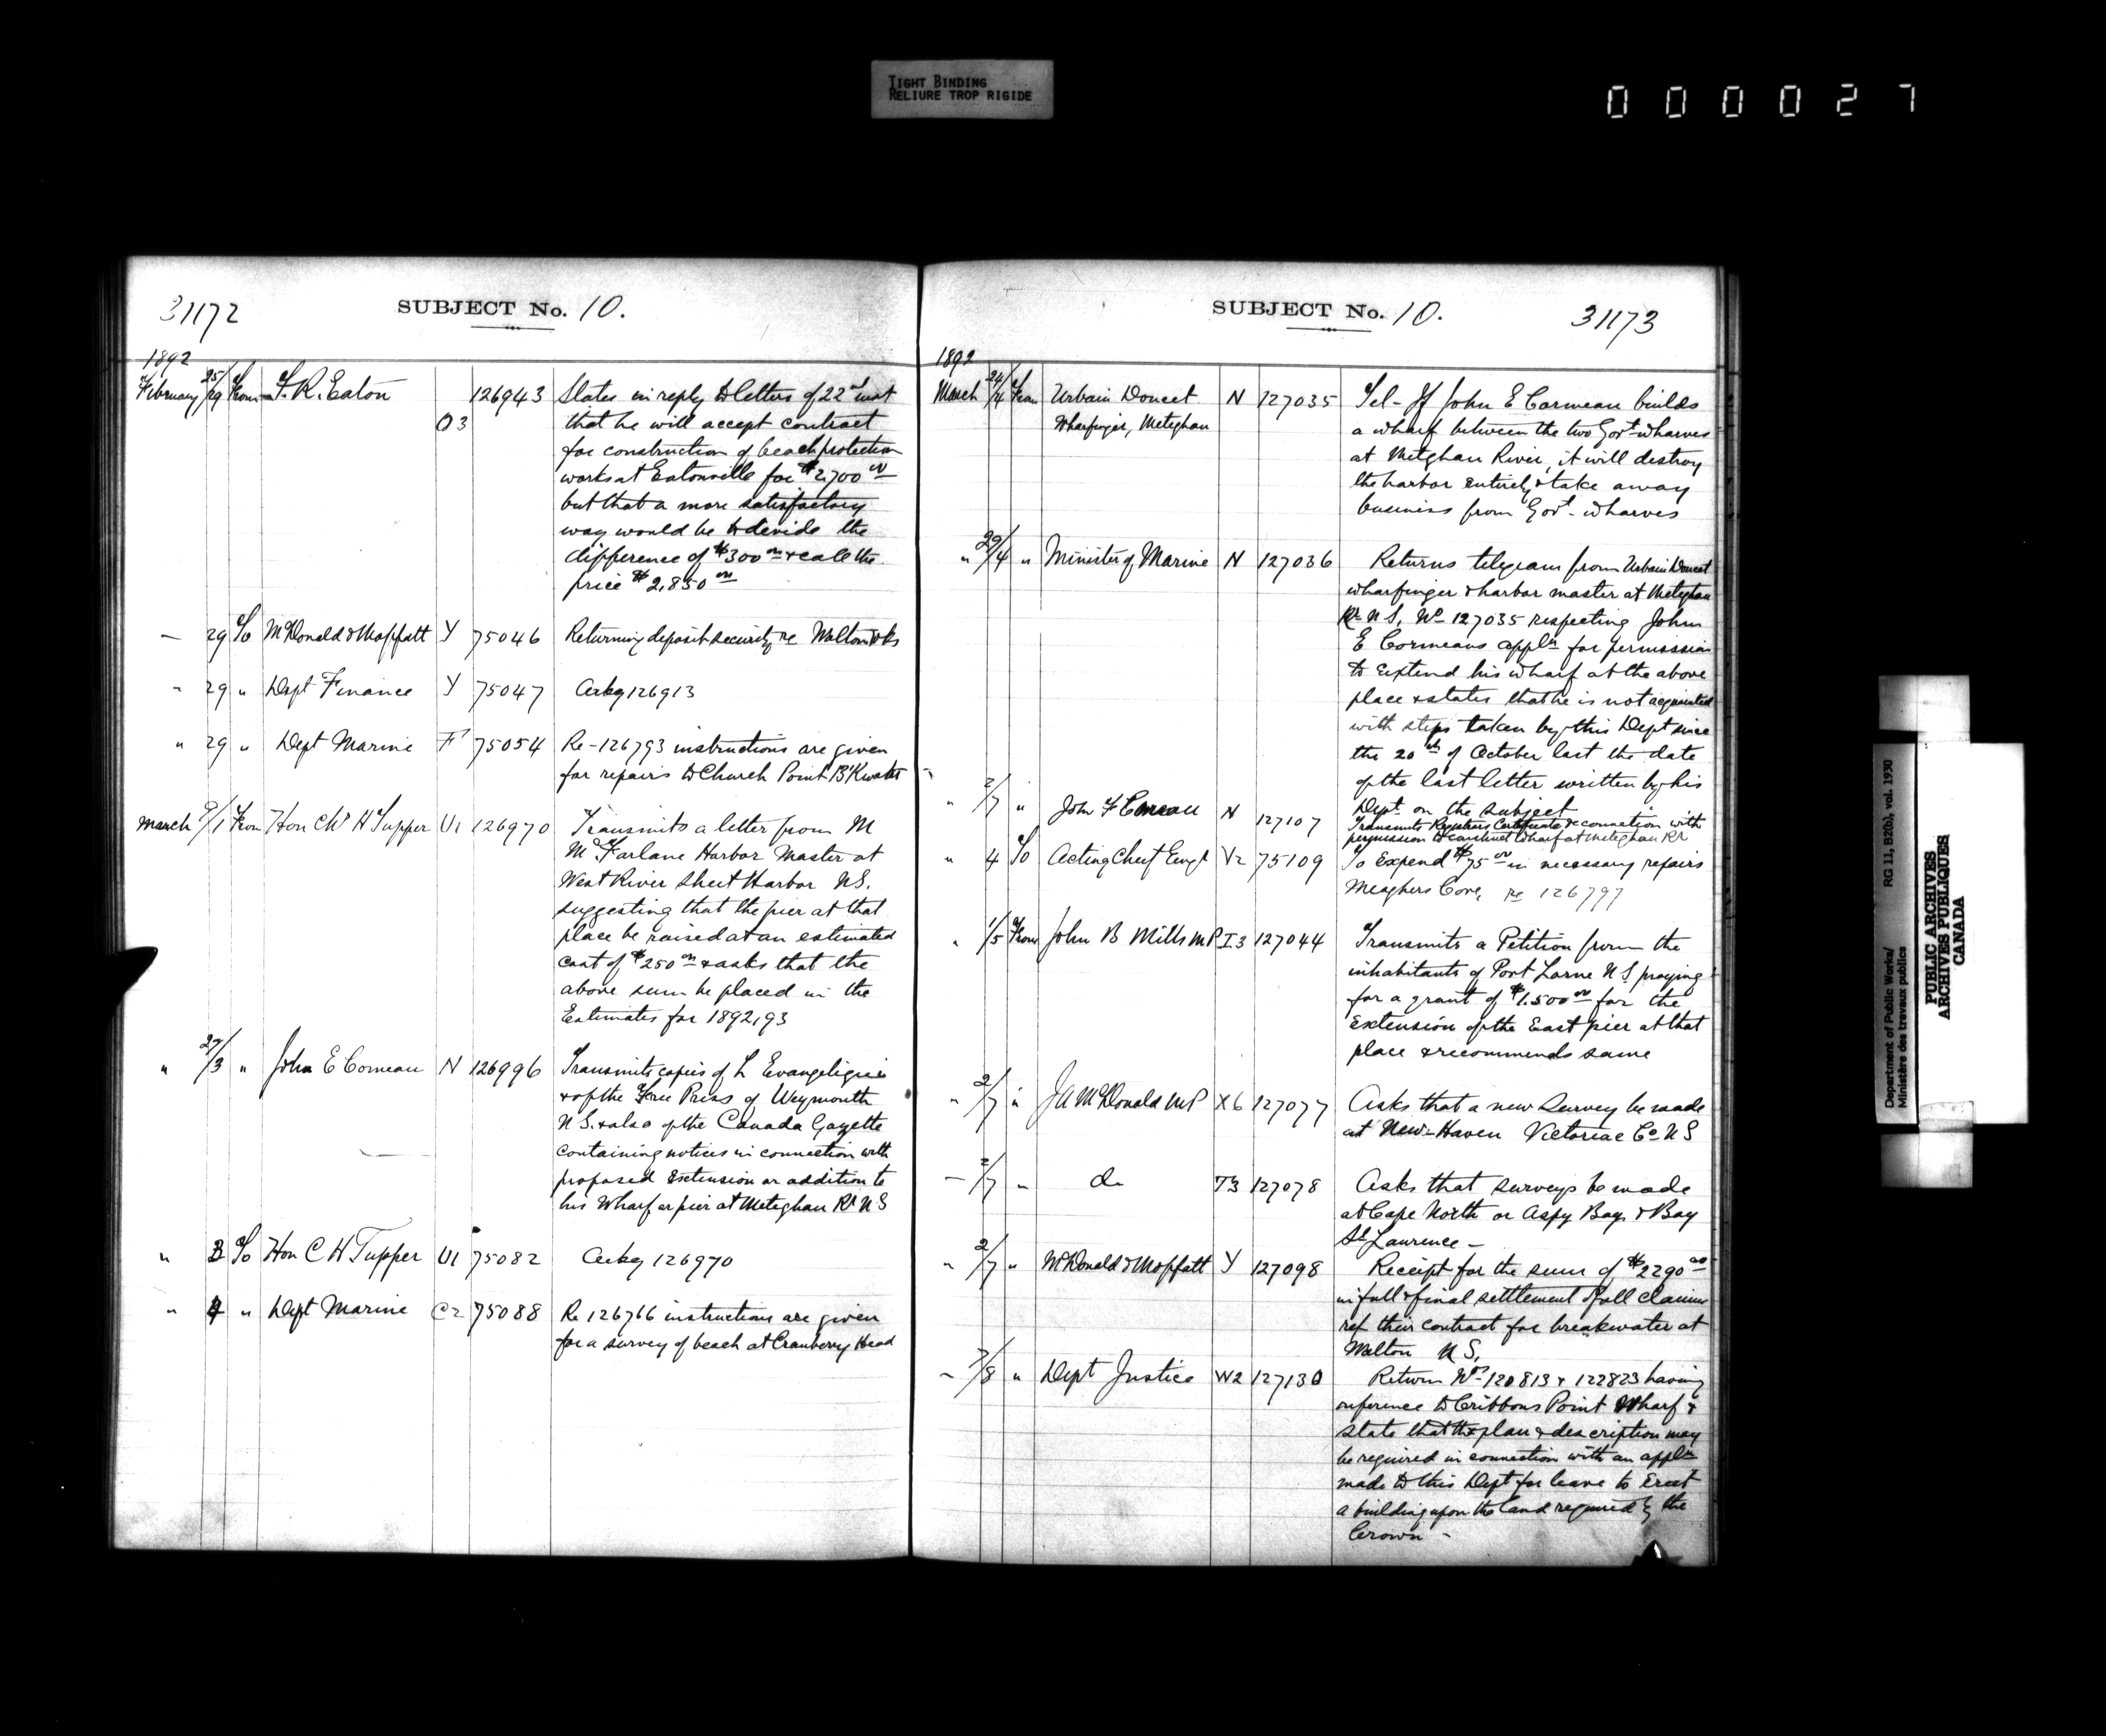 TIGHT BINDING
RELIURE TROP RIGIDE
000027
31172
SUBJECT No. 10.
1892
February 25/29 From F. R. Eaton O3 126943 States in reply to letters of 22nd inst
that he will accept contract
for construction of beach protection
works at Eatonville for $2,700 00
but that a more satisfactory
way would be to devide the
difference of $300 00 & call the
price $2,850 00
— 29 To McDonald & Moffatt Y 75046 Returning deposit security re Walton Wks
" 29 " Dept Finance Y 75047 Ackg 126913
" 29 " Dept Marine F 75054 Re-126793 instructions are given
for repairs to Church Point B'Kwater
March 9/1 From Hon Chs H Tupper U1 126970 Transmits a letter from M
McFarlane Harbor Master at
West River Sheet Harbor N.S.
suggesting that the pier at that
place be raised at an estimated
cost of $250 00 & asks that the
above sum be placed in the
Estimates for 1892,93
" 27/3 " John E Comeau N 126996 Transmits copies of L Evangeligine
& of the Free Press of Weymouth
N S. & also of the Canada Gazette
containing notices in connection with
proposed extension or addition to
his Wharf or pier at Meteghan Rr N S
" 3 To Hon C H Tupper U1 75082 Ackg 126970
" 4 " Dept Marine C2 75088 Re 126766 instructions are given
for a survey of beach at Cranberry Head
SUBJECT No. 10.
31173
1892
March 24/4 From Urbain Doucet N 127035 Tel- If John E Cormeau builds
Wharfinger, Meteghan a wharf between the two Govt wharves
at Metghan River, it will destroy
the harbor entirely & take away
business from Govt- wharves
" 29/4 " Minister of Marine N 127036 Returns telegram from Urbain Doucet
wharfinger & harbor master at Meteghan
Rr N S, No 127035 respecting John
E Cormeaus appln for permission
to extend his wharf at the above
place & states that he is not acquainted
with steps taken by this Dept since
the 20th of October last the date
of the last letter written by his
Dept on the subject
" 2/7 " John F Comeau N 127107 Transmits Registrars Certificate in connection with
permission to construct wharf at Meteghan Rr
" 4 To Acting Chief Engr V2 75109 To Expend $75 00 in necessary repairs
Meaghers Cove, re 126797
" 1/5 From John B Mills M P I3 127044 Transmits a Petition from the
inhabitants of Port Lorne N S praying
for a grant of $1.500 00 for the
Extension of the East pier at that
place & recommends same
" 2/7 " J A McDonald M P X6 127077 Asks that a new survey be made
at New-Haven Victoriae Co N S
— 2/7 " do T3 127078 Asks that surveys be made
at Cape North or Aspy Bay & Bay
St Lawrence —
" 2/7 " McDonald & Moffatt Y 127098 Receipt for the sum of $2290 00
in full & final settlement of all claims
ref their contract for breakwater at
Walton N S,
— 7/8 " Dept Justice W2 127130 Return Nos 120813 & 122823 having
reference to Cribbons Point Wharf &
state that the plan & description may
be required in connection with an appln
made to this Dept for leave to Erect
a building upon the land required by the
Crown —
Department of Public Works/ RG 11, B2(b), vol. 1930
Ministère des travaux publics
PUBLIC ARCHIVES
ARCHIVES PUBLIQUES
CANADA